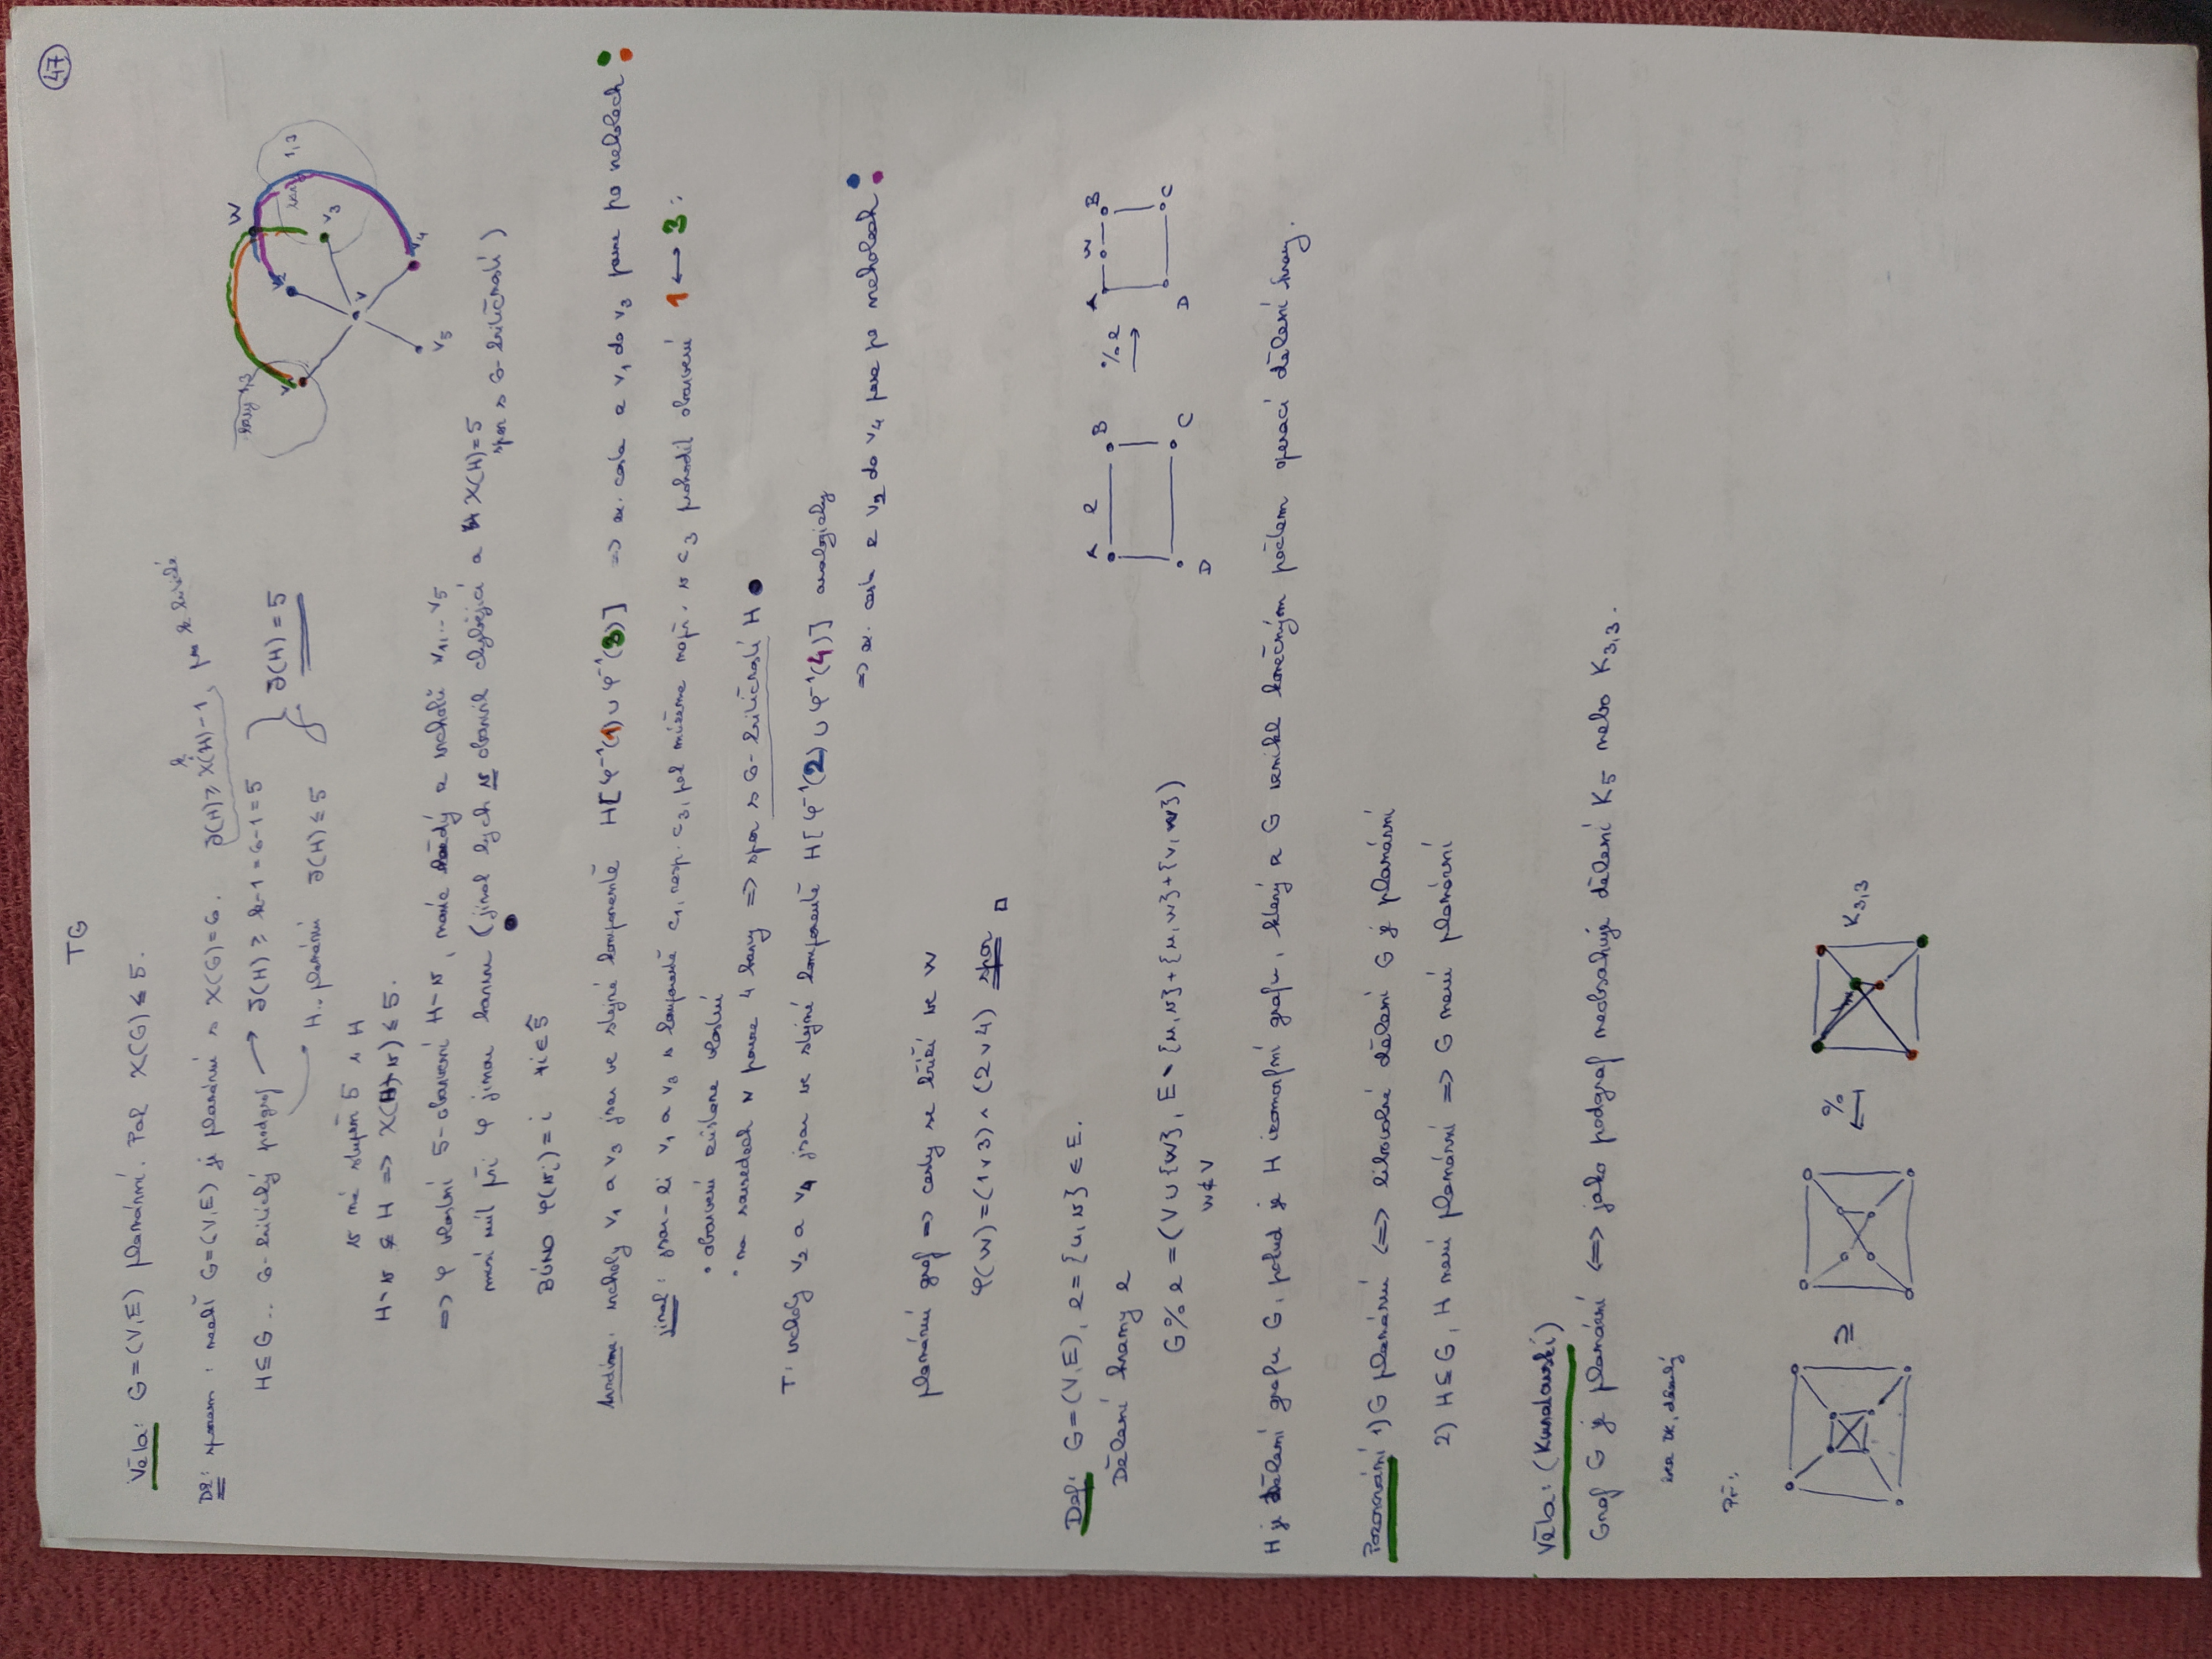 47
TG
Věta: G=(V,E) planární. Pak χ(G)≤5.
Dk: sporem: nechť G=(V,E) je planární s χ(G)=6. δ(H)≥χ(H)-1, pro k kritické
k
H⊆G .. 6-kritický podgraf → δ(H)≥k-1=6-1=5 } δ(H)=5
H.. planární δ(H)≤5
v má stupeň 5 v H
H∖v ⊊ H ⇒ χ(H∖v)≤5.
⇒ φ vlastní 5-obarvení H∖v, každý z vrcholů v₁...v₅
musí mít při φ jinou barvu (jinak bych v obarvil chybějící a χ(H)=5
spor s 6-kritičností)
BÚNO φ(vᵢ)=i ∀i∈5̂
barvy 1,3
1,3
v₂
W
v₃
v₄
v
v₅
tvrdíme: vrcholy v₁ a v₃ jsou ve stejné komponentě H[φ⁻¹(1)∪φ⁻¹(3)] ⇒ ex. cesta z v₁ do v₃ pouze po vrcholech
jinak: jsou-li v₁ a v₃ v komponentě c₁, resp. c₃, pak můžeme např. v c₃ prohodit obarvení 1↔3:
• obarvení zůstane vlastní
• na sousedech v pouze 4 barvy ⇒ spor s 6-kritičností H
T: vrcholy v₂ a v₄ jsou ve stejné komponentě H[φ⁻¹(2)∪φ⁻¹(4)] analogicky
⇒ ex. cesta z v₂ do v₄ pouze po vrcholech
planární graf ⇒ cesty se kříží ve W
φ(W)=(1∨3)∧(2∨4) spor □
Def: G=(V,E), e={u,v}∈E.
Dělení hrany e
G%e=(V∪{w}, E∖{u,v}+{u,w}+{v,w})
w∉V
A e B
D C
%e
→
A W B
D C
H je dělení grafu G, pokud je H izomorfní grafu, který z G vznikl konečným počtem operací dělení hrany.
Pozorování 1) G planární ⇔ libovolné dělení G je planární
2) H⊆G, H není planární ⇒ G není planární
Věta: (Kuratowski)
Graf G je planární ⇔ jako podgraf neobsahuje dělení K₅ nebo K₃,₃.
Př:
⊇
%
←
K₃,₃